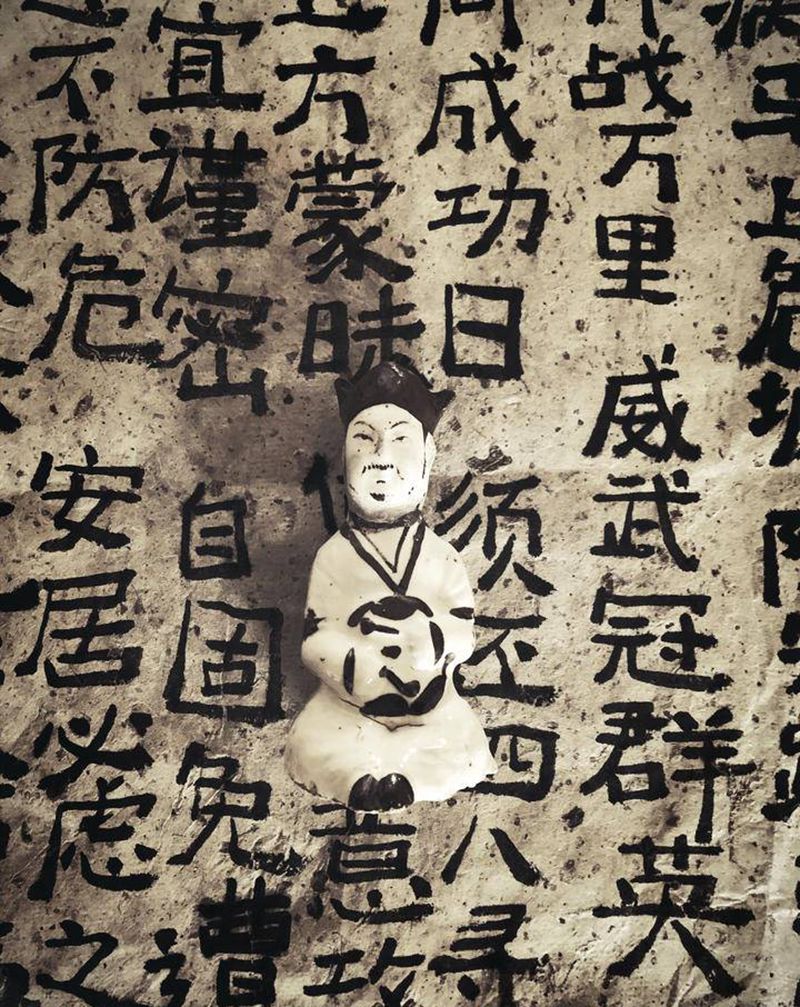 马上危城
战万里 威武冠群英
成功日 须丕四八寻
方蒙昧 意攻
宜谨密 自固免遭
不防危 安居必虑之